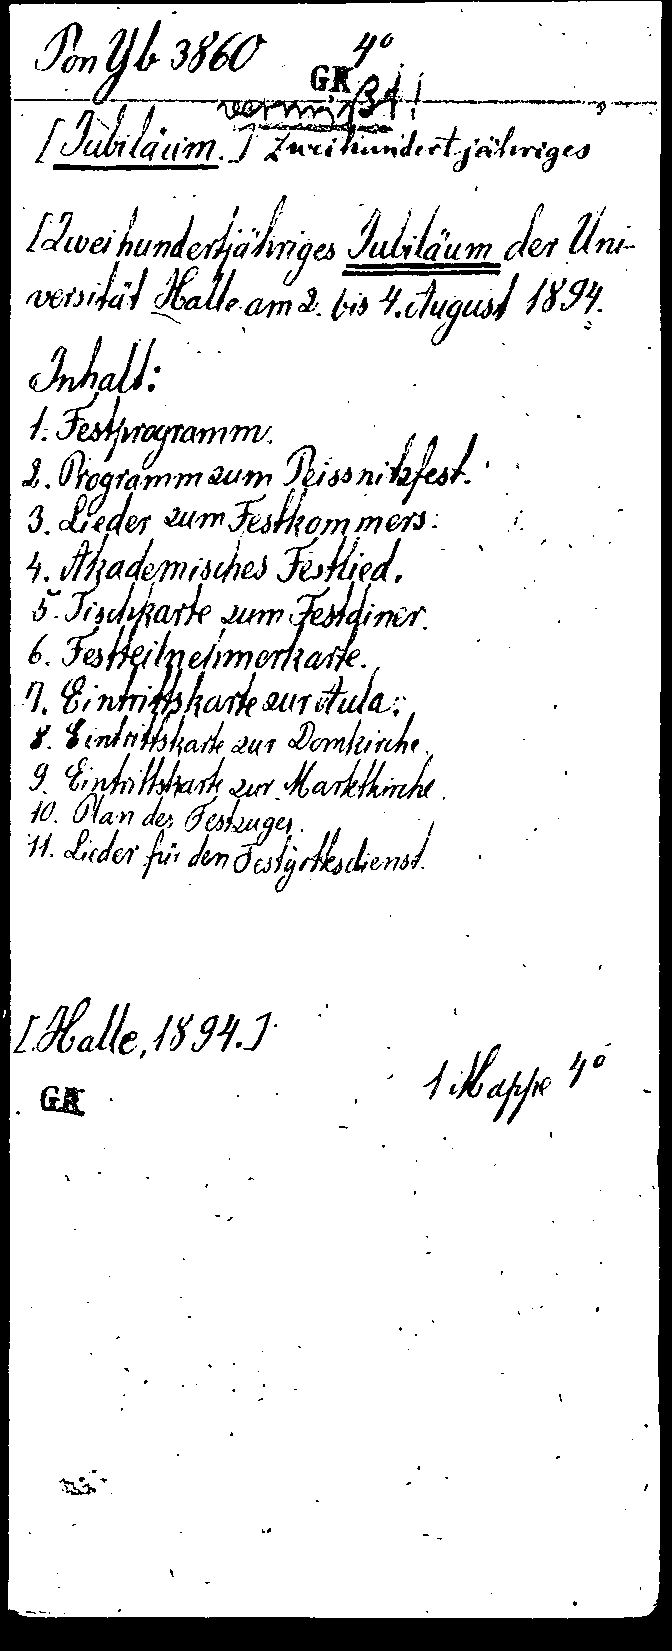 Pon Yb 3860 4°
GK
vermißt!
[Jubiläum.] Zweihundertjähriges
[Zweihundertjähriges Jubiläum der Uni-
versität Halle am 2. bis 4. August 1894.
Inhalt:
1. Festprogramm.
2. Programm zum Peissnitzfest.
3. Lieder zum Festkommers.
4. Akademisches Festlied.
5. Tischkarte zum Festdiner.
6. Festteilnehmerkarte.
7. Eintrittskarte zur Aula.
8. Eintrittskarte zur Domkirche.
9. Eintrittskarte zur Marktkirche.
10. Plan des Festzuges.
11. Lieder für den Festgottesdienst.
[Halle, 1894.]
1 Mappe 4°
GK